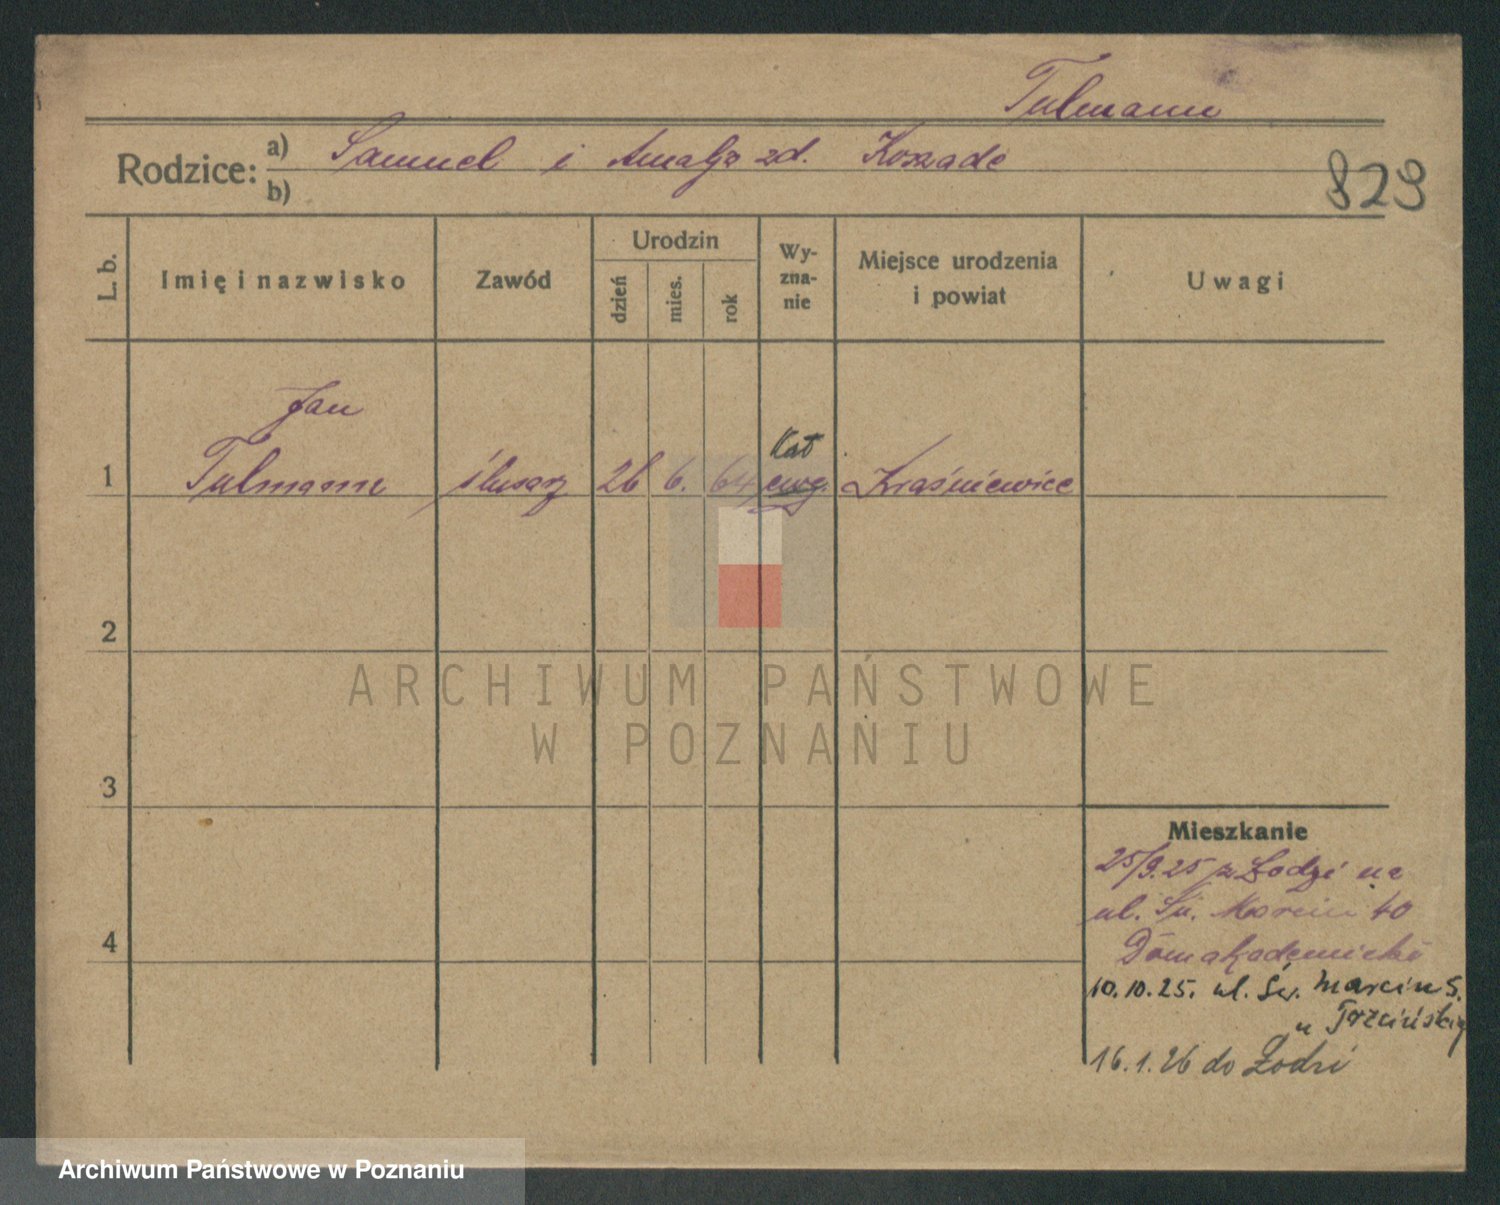 Tulmann
Rodzice: a) Samuel i Amalja zd. Koszade
b)
829
L. b. Imię i nazwisko Zawód Urodzin dzień mies. rok Wy-zna-nie Miejsce urodzenia i powiat Uwagi
Jan
Kat
1 Tulmann ślusarz 26 6. 64 ewg. Kraśniewice
2
ARCHIWUM PAŃSTWOWE
W POZNANIU
3
Mieszkanie
25/9.25 z Łodzi na
ul. Św. Marcin 40
4 Dom akademicki
10.10.25. ul. Św. Marcin 5.
u Trzcińskiej
16.1.26 do Łodzi
Archiwum Państwowe w Poznaniu